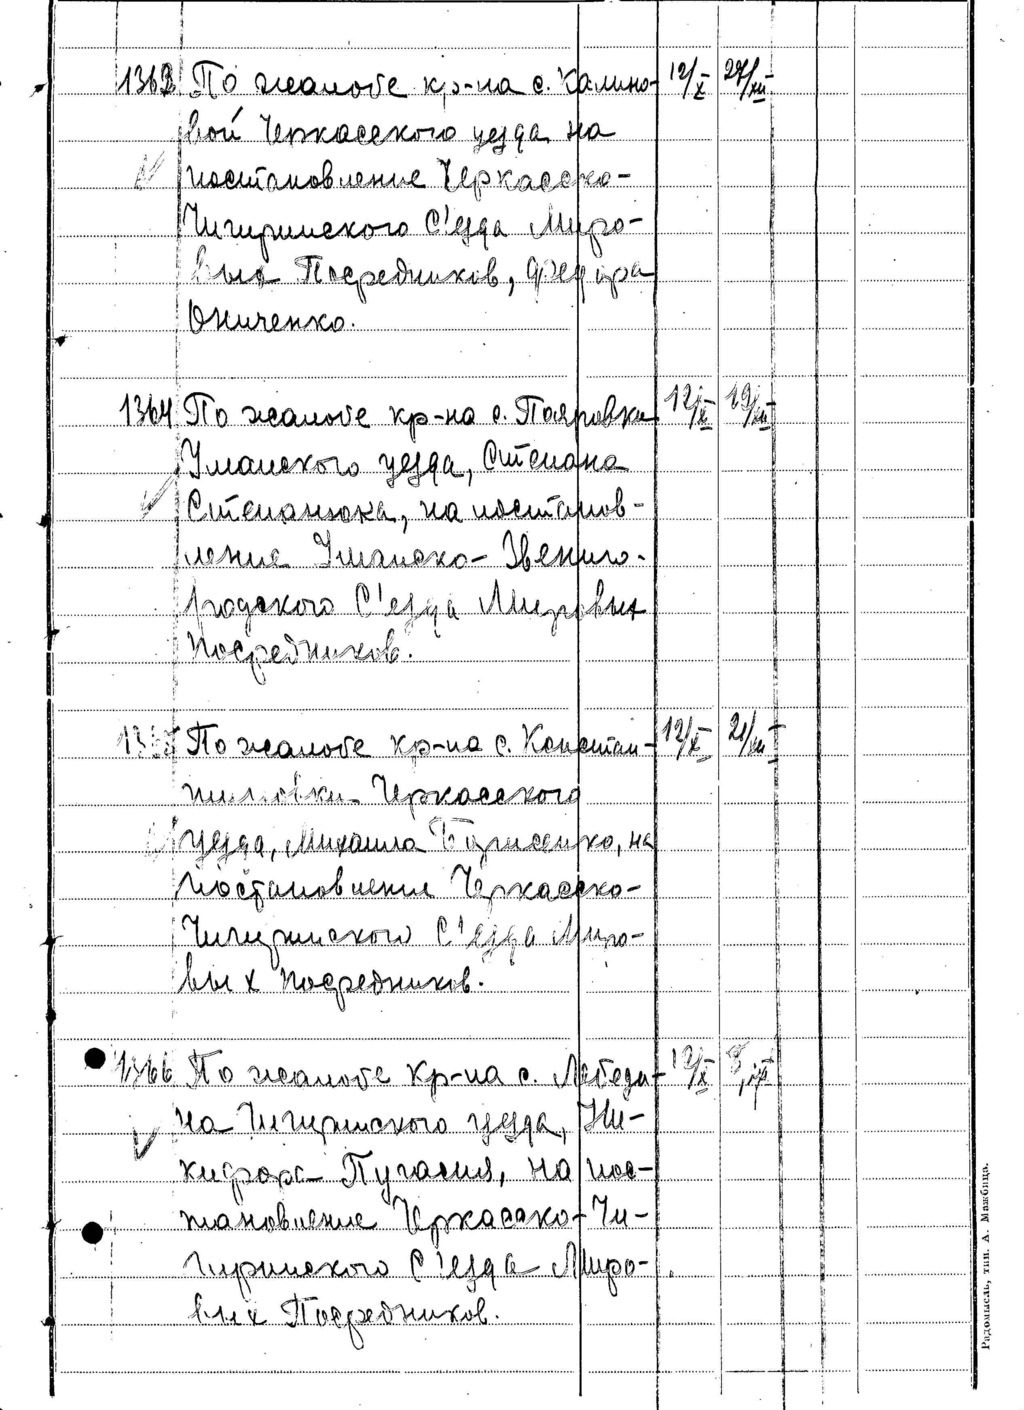 1363 По жалобе кр-на с. Калино- 12/X 27/XII
вой Черкасского уезда на
постановление Черкасско-
Чигиринского С'езда Миро-
вых Посредников, Федора
Ониченко.
1364 По жалобе кр-на с. Пояровки 12/X 19/XII
Уманского уезда, Степана
Степанюка, на постанов-
ление Уманско-Звениго-
родского С'езда Мировых
Посредников.
1365 По жалобе кр-на с. Констан- 12/X 21/XII
тиновки Черкасского
уезда, Михаила Борисенко, на
постановление Черкасско-
Чигиринского С'езда Миро-
вых посредников.
1366 По жалобе кр-на с. Лебеди- 12/X
на Чигиринского уезда, Ни-
кифора Пугача, на пос-
тановление Черкасско-Чи-
гиринского С'езда Миро-
вых Посредников.
Радомысль, тип. А. Мажбица.